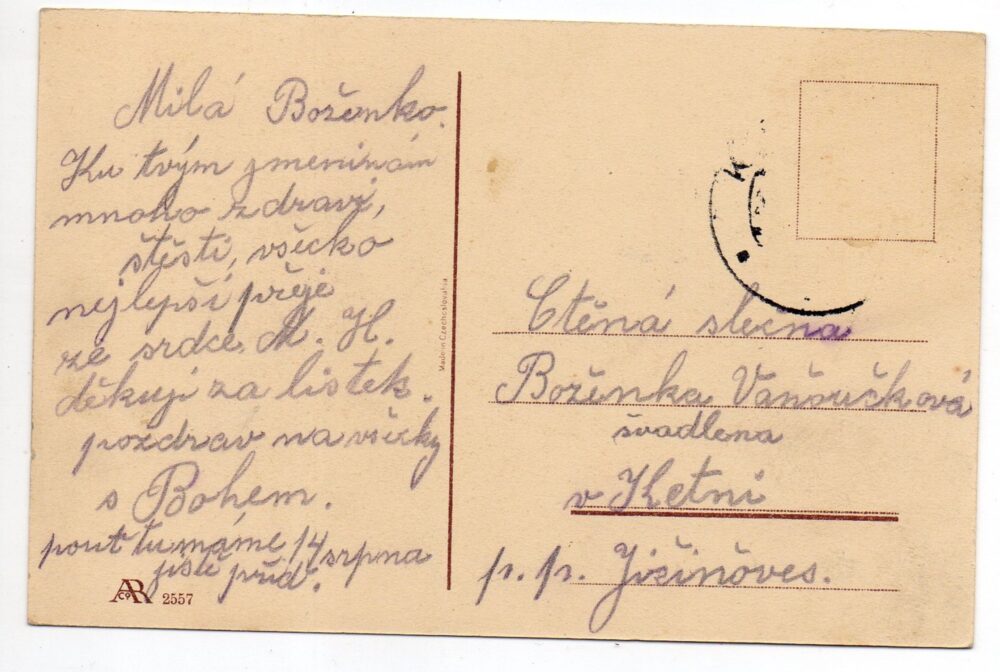 Milá Boženko.
Ku tvým jmeninám
mnoho zdraví,
štěstí, všecko
nejlepší přeje
ze srdce M. H.
děkuji za lístek.
pozdrav na všecky
s Bohem.
pout tu máme 14 srpna
jistě přiď.
Made in Czechoslovakia
Ctěná slečna
Boženka Vaňoučková
švadlena
v Ketni
p. p. Jičiněves.
2557